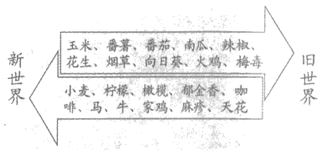 玉米、番薯、番茄、南瓜、辣椒、
花生、烟草、向日葵、火鸡、梅毒
新世界
旧世界
小麦、柠檬、橄榄、郁金香、咖
啡、马、牛、家鸡、麻疹、天花